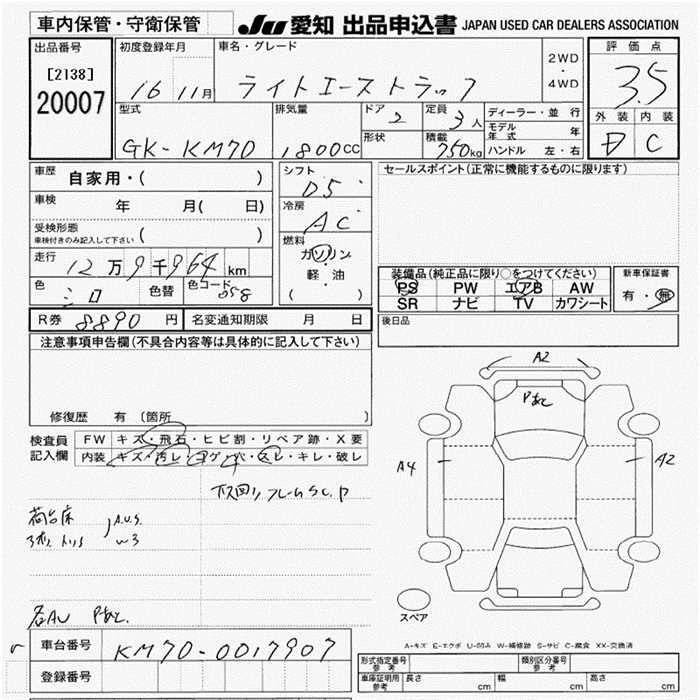 車内保管・守衛保管
JU 愛知 出品申込書 JAPAN USED CAR DEALERS ASSOCIATION
出品番号
[2138]
20007
初度登録年月
16 11月
車名・グレード
ライトエーストラック
2WD
・
4WD
評価点
3.5
外装 内装
D C
型式
GK-KM70
排気量
1800cc
ドア
2
形状
定員
3人
積載
750kg
ディーラー・並行
モデル年式 年
ハンドル 左・右
車歴
自家用・( )
車検
年 月( 日)
受検形態
車検付きのみ記入して下さい ( )
走行
12万9千964km
色
シロ
色替
色コード
058
シフト
D5
冷房
AC
燃料
ガソリン
・
軽・油
( )
セールスポイント(正常に機能するものに限ります)
装備品(純正品に限り○をつけてください)
PS PW エアB AW
SR ナビ TV カワシート
新車保証書
有・無
R券 8890円
名変通知期限 月 日
後日品
注意事項申告欄(不具合内容等は具体的に記入して下さい)
修復歴 有 (箇所 )
検査員記入欄
FW キズ・飛石・ヒビ割・リペア跡・X要
内装 キズ・汚レ・コゲ・穴・スレ・キレ・破レ
下回りフレームSC.P
荷台床
A.U.S.
W3
各AU Pあと.
A2
Pあと
A4
A2
スペア
A-キズ E-エクボ U-凹み W-補修跡 S-サビ C-腐食 XX-交換済
車台番号
KM70-0017907
登録番号
型式指定番号 参考
類別区分番号 参考
車庫証明用 参考 長さ cm 幅 cm 高さ cm